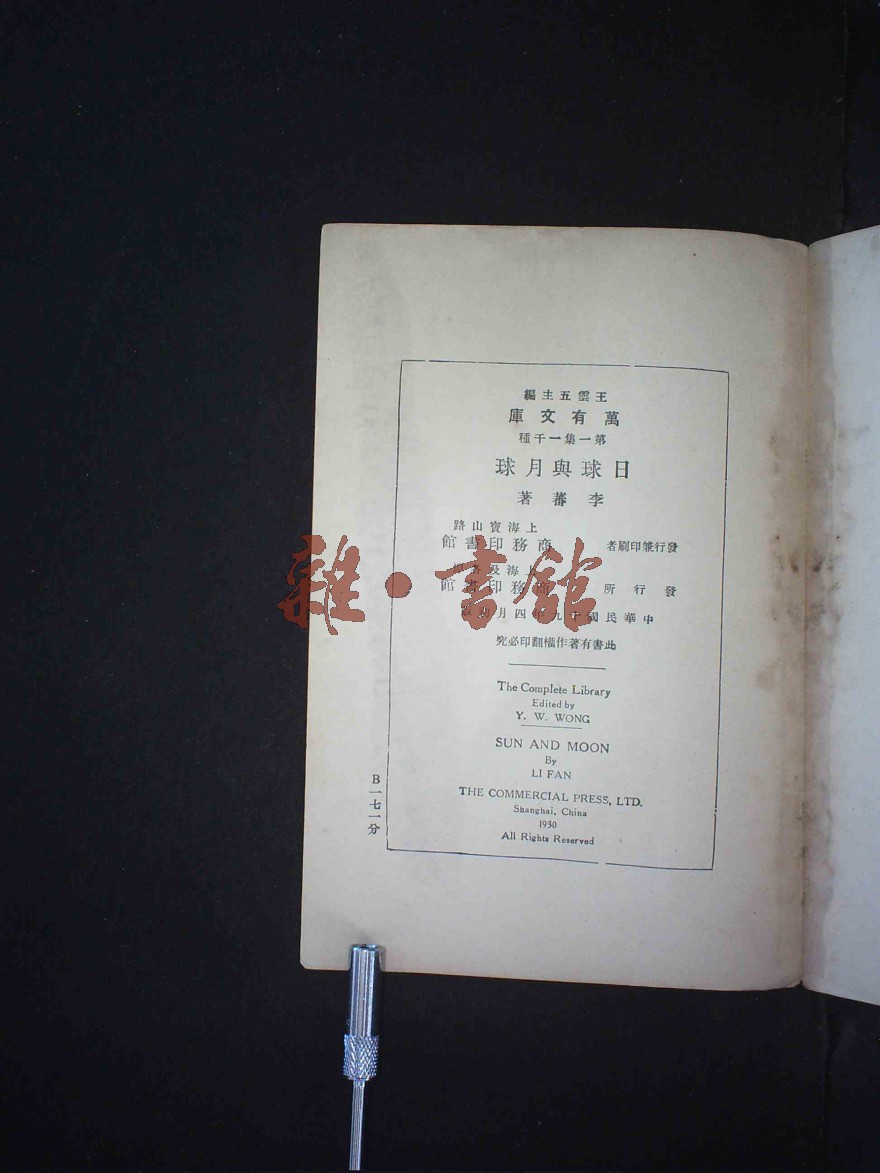 王雲五主編
萬有文庫
第一集一千種
日球與月球
李蕃著
上海寶山路
發行兼印刷者 商務印書館
上海及各埠
發行所 商務印書館
中華民國十九年四月初版
此書有著作權翻印必究
The Complete Library
Edited by
Y. W. WONG
SUN AND MOON
By
LI FAN
THE COMMERCIAL PRESS, LTD.
Shanghai, China
1930
All Rights Reserved
B一七一分
雜·書館